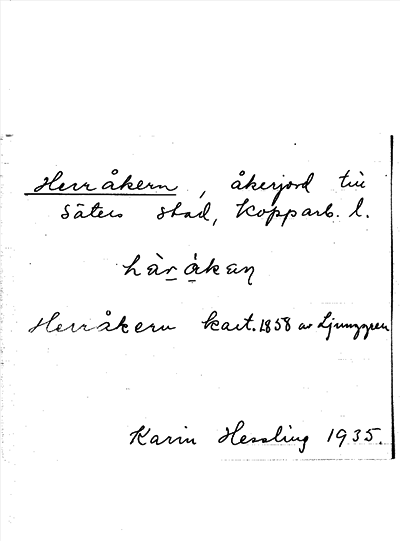 Herråkern, åkerjord till
Säters stad, Kopparb. l.
hàr åkan
Herråkern kart. 1858 av Ljunggren
Karin Hessling 1935.